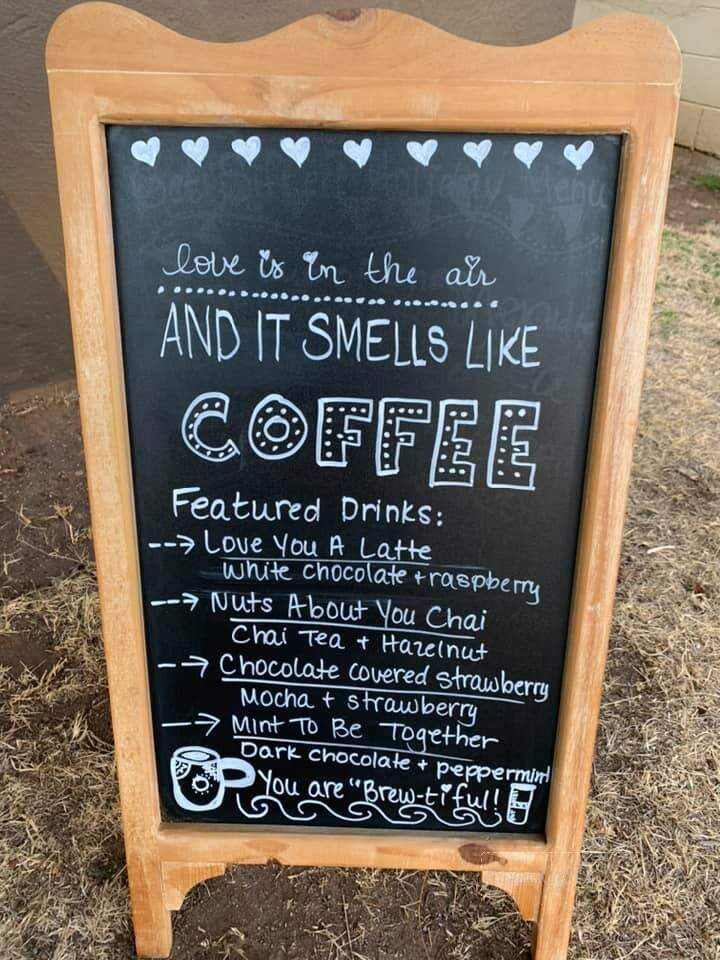 love is in the air
AND IT SMELLS LIKE
COFFEE
Featured Drinks:
--> Love You A Latte
White chocolate + raspberry
--> Nuts About You Chai
Chai Tea + Hazelnut
--> Chocolate covered strawberry
Mocha + strawberry
--> Mint To Be Together
Dark chocolate + peppermint
You are "Brew-tiful!